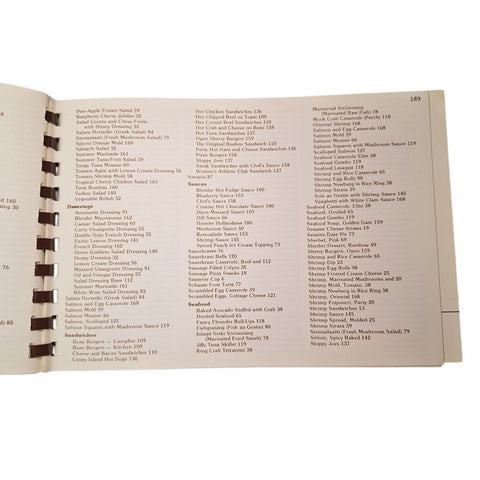 189
160
30
76
) 85
Pine-Apple Frozen Salad 59
Raspberry Cherry Jubilee 32
Salad Greens and Citrus Fruits
with Honey Dressing 32
Salata Horiatiki (Greek Salad) 84
Sienisalaati (Fresh Mushroom Salad) 79
Spiced Orange Mold 160
Spinach Salad 32
Summer Marinade 161
Summer Tuna-Fruit Salad 59
Tangy Tuna Mousse 60
Tomato Aspic with Lemon Cream Dressing 56
Tomato Shrimp Mold 58
Tropical Cherry Chicken Salad 161
Tuna Bombay 160
Turkey Salad 140
Vegetable Relish 32
Dressings
Antoinette Dressing 91
Blender Mayonnaise 162
Oatmeal Salad 60
Curry Vinaigrette Dressing 55
Double Duty French Dressing 161
Exotic Lemon Dressing 141
French Dressing 162
Green Goddess Salad Dressing 140
Honey Dressing 32
Lemon Cream Dressing 56
Mustard Vinaigrette Dressing 91
Oil and Vinegar Dressing 55
Salad Dressing Base 112
Summer Marinade 161
White Wine Salad Dressing 83
Salata Horiatiki (Greek Salad) 84
Salmon and Egg Casserole 168
Salmon Mold 39
Salmon Mousse 66
Salmon, Scalloped 121
Salmon Squares with Mushroom Sauce 119
Sandwiches
Bean Burgers — Campfire 109
Bean Burgers — Kitchen 109
Cheese and Bacon Sandwiches 110
Coney Island Hot Dogs 136
Hot Chicken Sandwiches 136
Hot Chipped Beef on Toast 109
Hot Corned Beef Sandwiches 110
Hot Crab and Cheese on Buns 158
Hot Tuna Sandwiches 136
Open Burgers 109
The Original Reuben Sandwich 110
Party Hot Ham and Cheese Sandwiches 136
Pizza Burgers 158
Sloppy Joes 137
Steak Sandwiches with Chef's Sauce 158
Women's Athletic Club Sandwich 137
Sangria 87
Sauces
Blender Hot Fudge Sauce 180
Blueberry Sauce 153
Chef's Sauce 158
Creamy Hot Chocolate Sauce 180
Dijon Mustard Sauce 103
Dill Sauce 66
Hoosier Hollandaise 180
Mushroom Sauce 50
Remoulade Sauce 153
Shrimp Sauce 145
Spiced Peach (Ice Cream Topping) 73
Sauerbraten 76
Sauerkraut Balls 120
Sauerkraut Casserole, Beef and 112
Sausage Filled Crêpes 35
Sausage Pizza Snacks 18
Sauterne Cup 6
Schaum Furet Torte 77
Scrambled Egg Casserole 39
Scrambled Eggs, Cottage Cheese 121
Seafood
Baked Avocado Stuffed with Crab 38
Deviled Seafood 65
Fancy Flounder Roll-Ups 118
Island Siski Strömming
(Marinated Fried Smelt) 78
Jiffy Tuna Skillet 119
King Crab Tetrazzini 38
Marinerad Strömming
(Marinated Raw Fish) 78
Mock Crab Casserole (Perch) 118
Oriental Shrimp 168
Salmon and Egg Casserole 168
Salmon Mold 39
Salmon Mousse 66
Salmon Squares with Mushroom Sauce 119
Scalloped Salmon 121
Seafood Casserole Elite 38
Seafood Gumbo 119
Seafood Lasagna 118
Shrimp and Rice Casserole 65
Shrimp Egg Rolls 98
Shrimp Newburg in Rice Ring 38
Shrimp Strata 39
Sole au Gratin with Shrimp Sauce 145
Spaghetti with White Clam Sauce 168
Seafood Casserole, Elite 38
Seafood, Deviled 65
Seafood Gumbo 119
Seafood Soup, Golden Gate 159
Sesame Cheese Straws 19
Sesame Date Pie 73
Sherbet, Pink 69
Sherbet Dessert, Rainbow 49
Sherry Burgers, Open 109
Shrimp and Rice Casserole 65
Shrimp Dip 23
Shrimp Egg Rolls 98
Shrimp Frosted Cream Cheese 25
Shrimp, Marinated Mushrooms and 20
Shrimp Mold, Tomato 58
Shrimp Newburg in Rice Ring 38
Shrimp, Oriental 168
Shrimp Potpourri, Party 20
Shrimp Sandwiches 13
Shrimp Sauce 145
Shrimp Spread, Molded 25
Shrimp Strata 39
Sienisalaati (Fresh Mushroom Salad) 79
Sirloin, Spicy Baked 142
Sloppy Joes 137